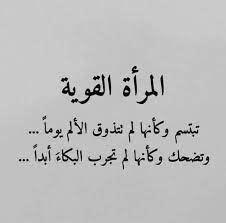 المرأة القوية
تبتسم وكأنها لم تتذوق الألم يوماً ...
وتضحك وكأنها لم تجرب البكاءَ أبداً ...